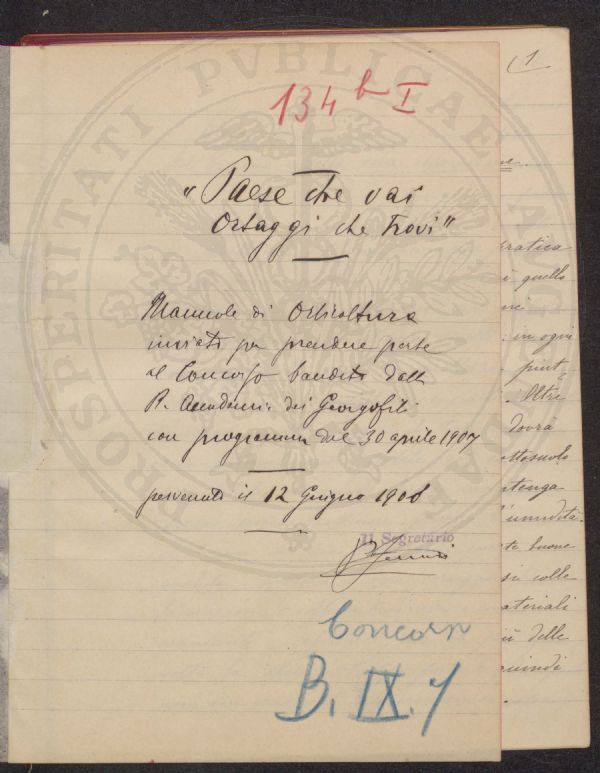 134 b I
"Paese che vai
Ortaggi che trovi"
Manuale di Orticoltura
inviato per prendere parte
al Concorso bandito dalla
R. Accademia dei Georgofili
con programma del 30 aprile 1907
pervenuto il 12 Giugno 1908
Il Segretario
Concorsi
B. IX. 7
PROSPERITATI PVBLICAE AVG
(1
ne.
pratica
quello
in ogni
piut
Oltre
dovrà
ottosuolo
ntenga
l'umidità
te buone
si colle
ateriali
più delle
quindi